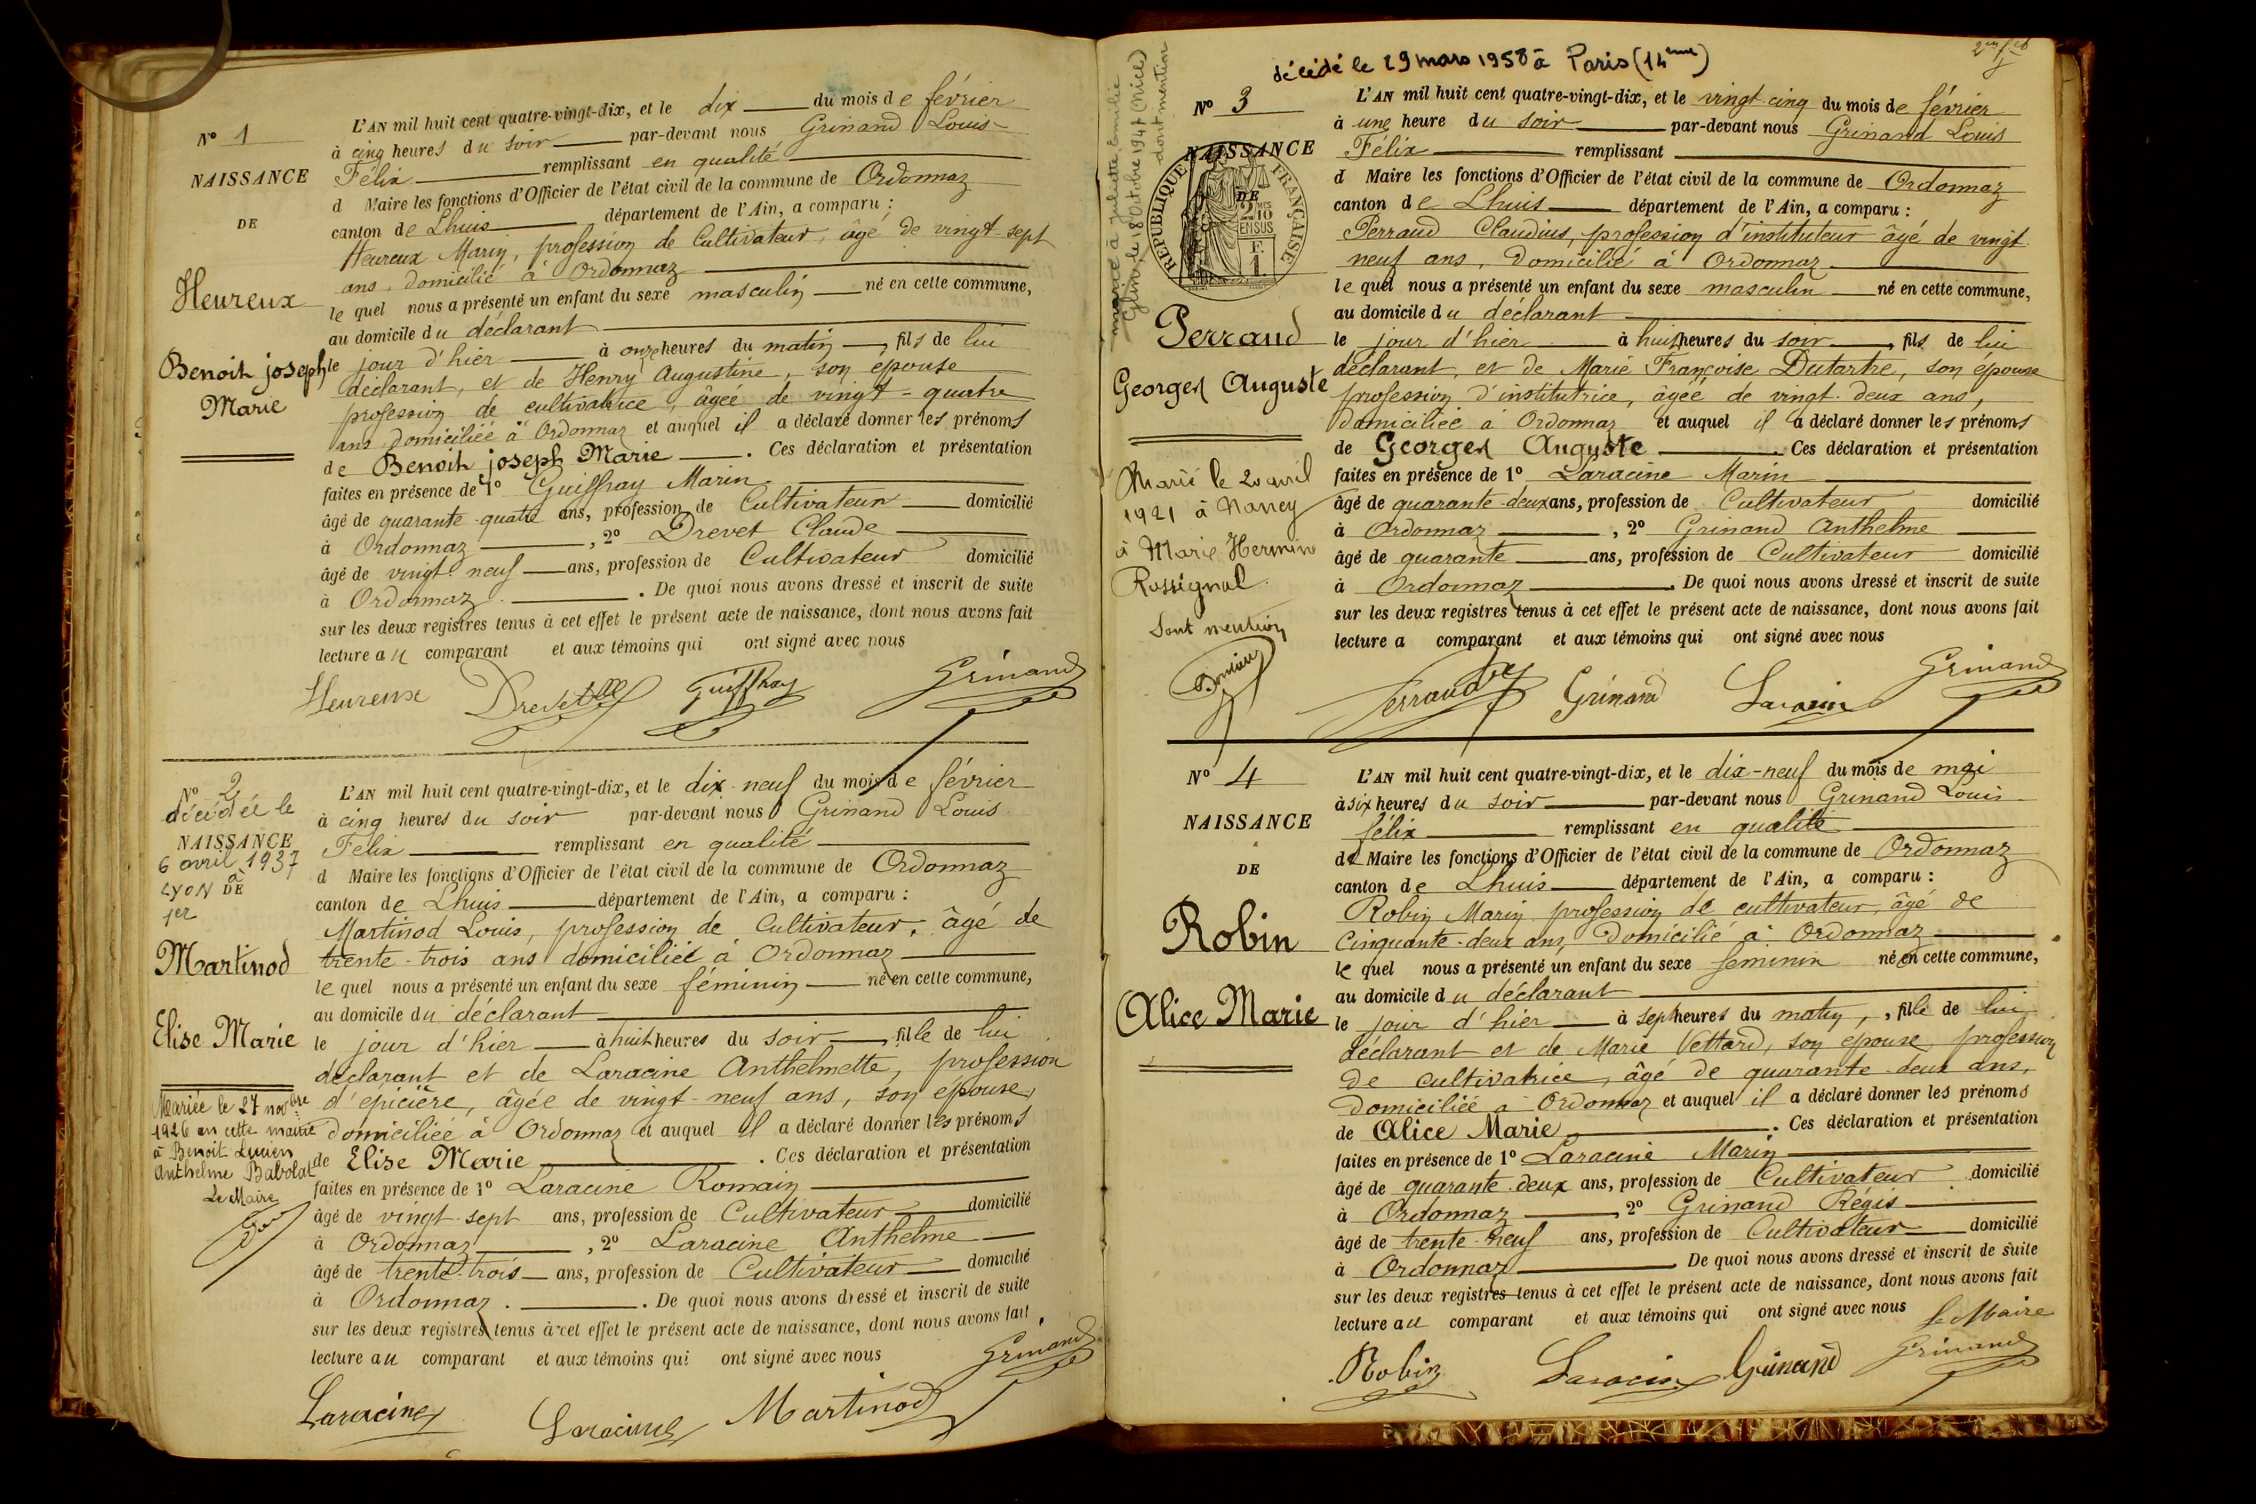 N° 1
NAISSANCE
DE
Heureux
Benoit joseph
Marie
L'AN mil huit cent quatre-vingt-dix, et le dix du mois de février
à cinq heures du soir par-devant nous Grinand Louis
Félix remplissant en qualité
d Maire les fonctions d'Officier de l'état civil de la commune de Ordonnaz
canton de Lhuis département de l'Ain, a comparu :
Heureux Marin, profession de Cultivateur, âgé de vingt-sept
ans, domicilié à Ordonnaz
le quel nous a présenté un enfant du sexe masculin né en cette commune,
au domicile du déclarant
le jour d'hier à onze heures du matin, fils de lui
déclarant, et de Henry Augustine, son épouse
profession de cultivatrice, âgée de vingt-quatre
ans domiciliée à Ordonnaz et auquel il a déclaré donner les prénoms
de Benoit joseph Marie. Ces déclaration et présentation
faites en présence de 1° Guiffray Marin
âgé de quarante-quatre ans, profession de Cultivateur domicilié
à Ordonnaz, 2° Drevet Claude
âgé de vingt-neuf ans, profession de Cultivateur domicilié
à Ordonnaz. De quoi nous avons dressé et inscrit de suite
sur les deux registres tenus à cet effet le présent acte de naissance, dont nous avons fait
lecture au comparant et aux témoins qui ont signé avec nous
Heureux Drevet Guiffray Grinand
N° 2
décédée le
NAISSANCE
6 avril 1937
à
LYON DE
1er
Martinod
Elise Marie
Mariée le 27 novbre
1926 en cette mairie
à Benoit Lucien
Anthelme Babolat
Le Maire
L'AN mil huit cent quatre-vingt-dix, et le dix-neuf du mois de février
à cinq heures du soir par-devant nous Grinand Louis
Félix remplissant en qualité
d Maire les fonctions d'Officier de l'état civil de la commune de Ordonnaz
canton de Lhuis département de l'Ain, a comparu :
Martinod Louis, profession de Cultivateur, âgé de
trente-trois ans domicilié à Ordonnaz
le quel nous a présenté un enfant du sexe féminin né en cette commune,
au domicile du déclarant
le jour d'hier à huit heures du soir, fille de lui
déclarant et de Laracine Anthelmette, profession
d'épicière, âgée de vingt-neuf ans, son épouse
domiciliée à Ordonnaz et auquel il a déclaré donner les prénoms
de Elise Marie. Ces déclaration et présentation
faites en présence de 1° Laracine Romain
âgé de vingt-sept ans, profession de Cultivateur domicilié
à Ordonnaz, 2° Laracine Anthelme
âgé de trente-trois ans, profession de Cultivateur domicilié
à Ordonnaz. De quoi nous avons dressé et inscrit de suite
sur les deux registres tenus à cet effet le présent acte de naissance, dont nous avons fait
lecture au comparant et aux témoins qui ont signé avec nous
Grinand
Laracine Laracine Martinod
décédé le 29 mars 1958 à Paris (14ème)
marié à juliette Emilie
le 18 octobre 1947 (Nice)
dont mention
N° 3
NAISSANCE
DE
REPUBLIQUE FRANÇAISE
2 MES 10
EN SUS
F.
1.
Perraud
Georges Auguste
Marié le 20 avril
1921 à Nancy
à Marie Hermine
Rossignol
Dont mention
L'AN mil huit cent quatre-vingt-dix, et le vingt-cinq du mois de février
à une heure du soir par-devant nous Grinand Louis
Félix remplissant
d Maire les fonctions d'Officier de l'état civil de la commune de Ordonnaz
canton de Lhuis département de l'Ain, a comparu :
Perraud Claudius, profession d'instituteur âgé de vingt-
neuf ans, domicilié à Ordonnaz
le quel nous a présenté un enfant du sexe masculin né en cette commune,
au domicile du déclarant
le jour d'hier à huit heures du soir, fils de lui
déclarant, et de Marie Françoise Dutartre, son épouse
profession d'institutrice, âgée de vingt-deux ans,
domiciliée à Ordonnaz et auquel il a déclaré donner les prénoms
de Georges Auguste. Ces déclaration et présentation
faites en présence de 1° Laracine Marin
âgé de quarante-deux ans, profession de Cultivateur domicilié
à Ordonnaz, 2° Grinand Anthelme
âgé de quarante ans, profession de Cultivateur domicilié
à Ordonnaz. De quoi nous avons dressé et inscrit de suite
sur les deux registres tenus à cet effet le présent acte de naissance, dont nous avons fait
lecture a comparant et aux témoins qui ont signé avec nous
Perraud Grinand Laracine Grinand
N° 4
NAISSANCE
DE
Robin
Alice Marie
L'AN mil huit cent quatre-vingt-dix, et le dix-neuf du mois de mai
à six heures du soir par-devant nous Grinand Louis
félix remplissant en qualité
de Maire les fonctions d'Officier de l'état civil de la commune de Ordonnaz
canton de Lhuis département de l'Ain, a comparu :
Robin Marin profession de cultivateur, âgé de
Cinquante-deux ans, domicilié à Ordonnaz
le quel nous a présenté un enfant du sexe féminin né en cette commune,
au domicile du déclarant
le jour d'hier à sept heures du matin, fille de lui
déclarant et de Marie Vettard, son épouse, profession
de cultivatrice, âgé de quarante-deux ans,
domiciliée à Ordonnaz et auquel il a déclaré donner les prénoms
de Alice Marie. Ces déclaration et présentation
faites en présence de 1° Laracine Marin
âgé de quarante-deux ans, profession de Cultivateur domicilié
à Ordonnaz, 2° Grinand Régis
âgé de trente-neuf ans, profession de Cultivateur domicilié
à Ordonnaz. De quoi nous avons dressé et inscrit de suite
sur les deux registres tenus à cet effet le présent acte de naissance, dont nous avons fait
lecture au comparant et aux témoins qui ont signé avec nous
le Maire
Robin Laracine Grinand Grinand